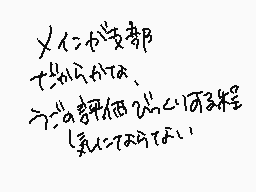 メインが支部
だからかな、
うごの評価びっくりする程
気にならない